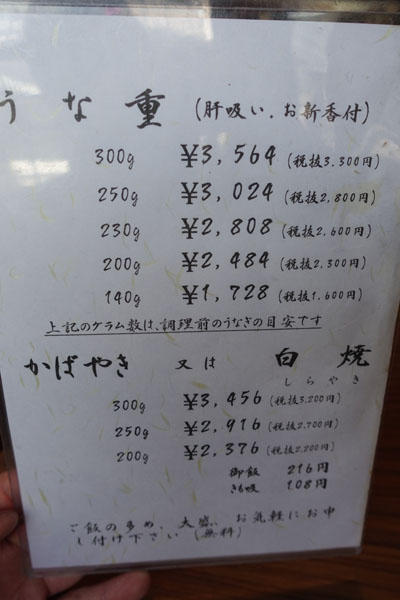 うな重 (肝吸い.お新香付)
300g ¥3,564 (税抜3,300円)
250g ¥3,024 (税抜2,800円)
230g ¥2,808 (税抜2,600円)
200g ¥2,484 (税抜2,300円)
140g ¥1,728 (税抜1,600円)
上記のグラム数は、調理前のうなぎの目安です
かばやき 又は 白焼
しらやき
300g ¥3,456 (税抜3,200円)
250g ¥2,916 (税抜2,700円)
200g ¥2,376 (税抜2,200円)
御飯 216円
きも吸 108円
ご飯の多め、大盛、お気軽にお申
し付け下さい(無料)